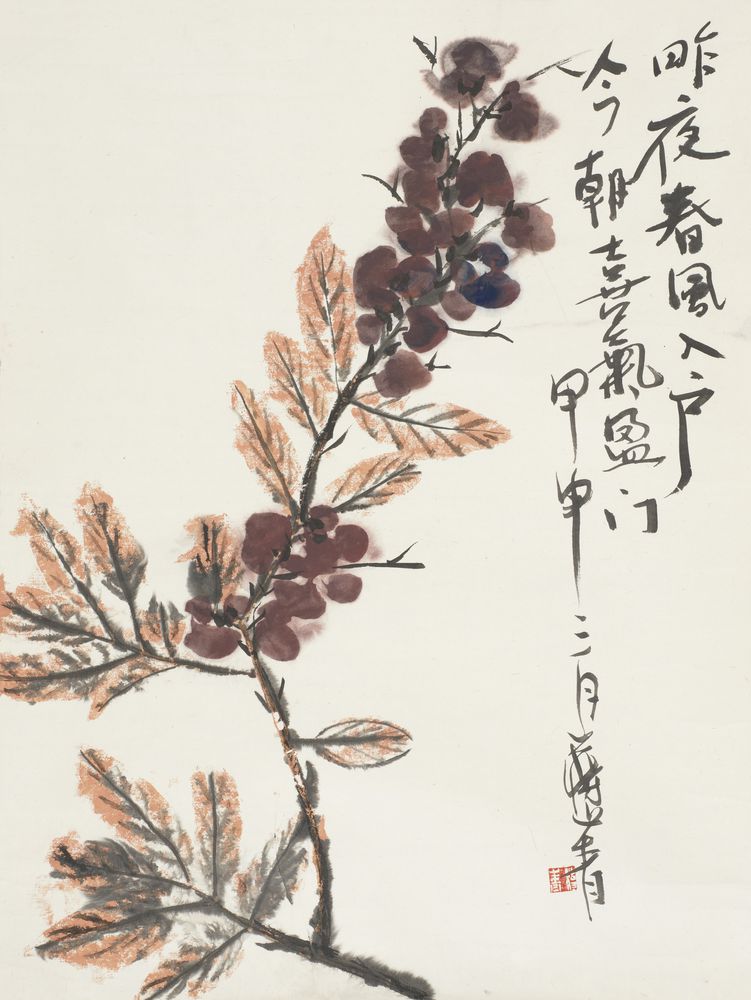 昨夜春風入户
今朝喜氣盈门
甲申三月